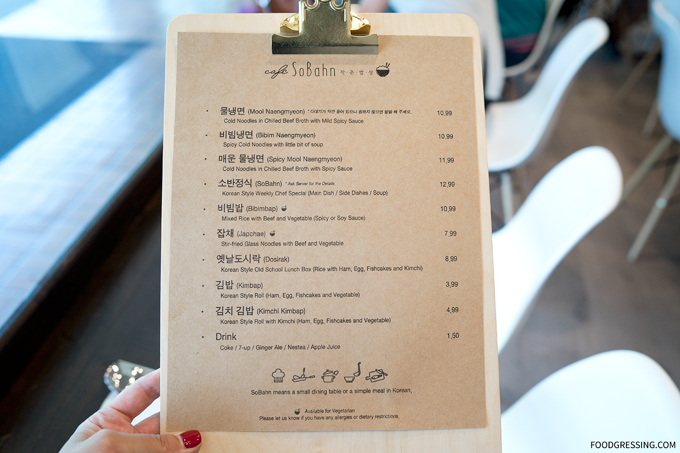 café SoBahn 작은밥상
물냉면 (Mool Naengmyeon) 10,99
Cold Noodles in Chilled Beef Broth with Mild Spicy Sauce
비빔냉면 (Bibim Naengmyeon) 10,99
Spicy Cold Noodles with little bit of soup
매운 물냉면 (Spicy Mool Naengmyeon) 11,99
Cold Noodles in Chilled Beef Broth with Spicy Sauce
소반정식 (SoBahn) * Ask Server for the Details 12,99
Korean Style Weekly Chef Special (Main Dish / Side Dishes / Soup)
비빔밥 (Bibimbap) 10,99
Mixed Rice with Beef and Vegetable (Spicy or Soy Sauce)
잡채 (Japchae) 7,99
Stir-fried Glass Noodles with Beef and Vegetable
옛날도시락 (Dosirak) 8,99
Korean Style Old School Lunch Box (Rice with Ham, Egg, Fishcakes and Kimchi)
김밥 (Kimbap) 3,99
Korean Style Roll (Ham, Egg, Fishcakes and Vegetable)
김치 김밥 (Kimchi Kimbap) 4,99
Korean Style Roll with Kimchi (Ham, Egg, Fishcakes and Vegetable)
Drink 1,50
Coke / 7-up / Ginger Ale / Nestea / Apple Juice
SoBahn means a small dining table or a simple meal in Korean.
Available for Vegetarian
Please let us know if you have any allergies or dietary restrictions.
FOODGRESSING.COM